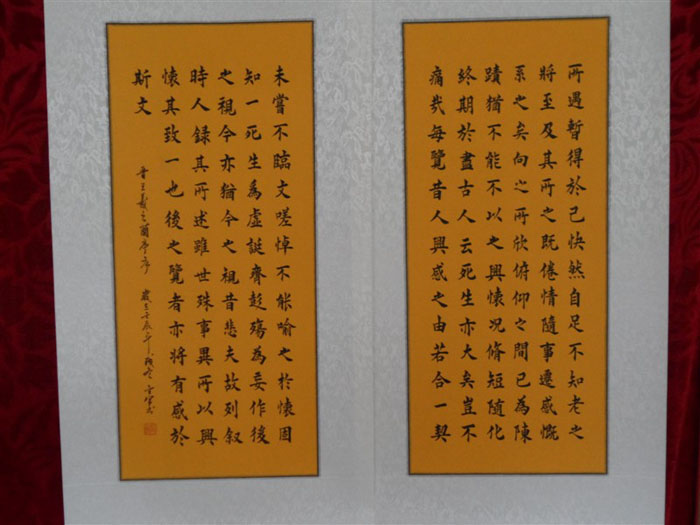 所遇暫得於己快然自足不知老之
將至及其所之既倦情隨事遷感慨
系之矣向之所欣俯仰之間已為陳
蹟猶不能不以之興懷況脩短隨化
終期於盡古人云死生亦大矣豈不
痛哉每覽昔人興感之由若合一契
未嘗不臨文嗟悼不能喻之於懷固
知一死生為虛誕齊彭殤為妄作後
之視今亦猶今之視昔悲夫故列叙
時人錄其所述雖世殊事異所以興
懷其致一也後之覽者亦將有感於
斯文
晉王羲之蘭亭序 歲在壬辰年